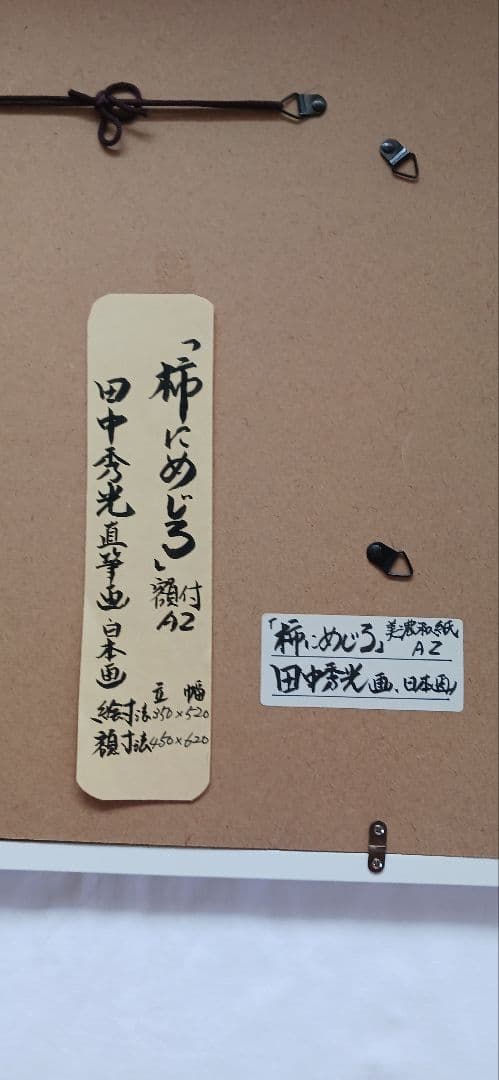 「柿にめじろ」額付
A2
田中秀光直筆画 日本画
立 幅
絵寸法350×520
額寸法450×620
「柿にめじろ」美濃和紙
A2
田中秀光画、日本画